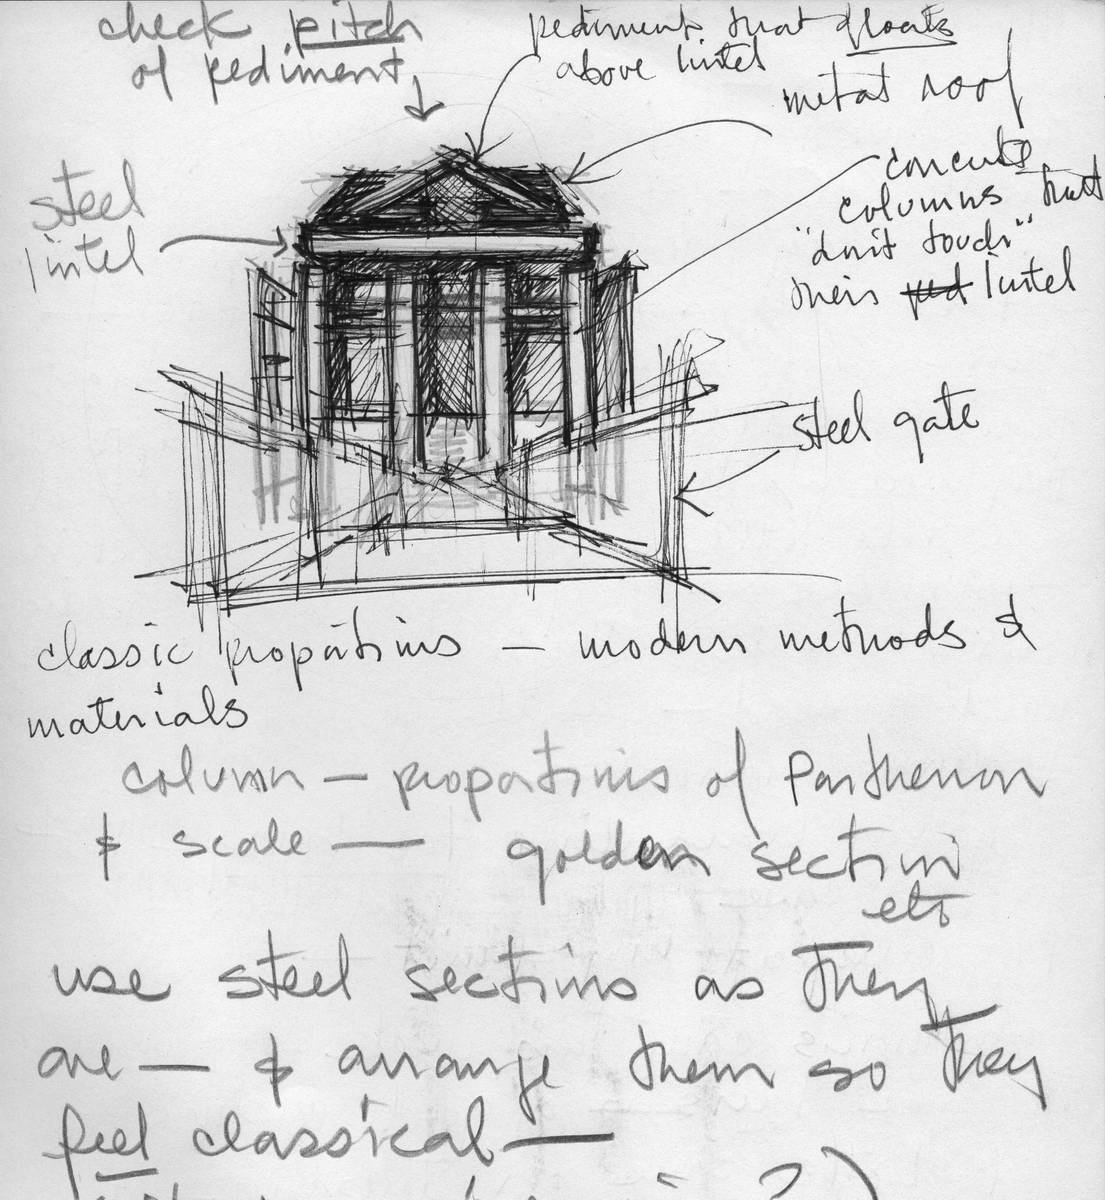 check pitch
of pediment
pediment that floats
above lintel
metal roof
steel
lintel
concrete
columns that
"don't touch"
their lintel
steel gate
classic proportions — modern methods &
materials
column — proportions of Parthenon
& scale — golden section
etc
use steel sections as they
are — & arrange them so they
feel classical —